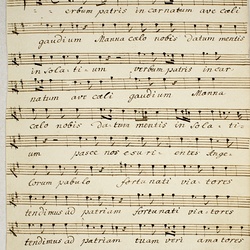 erbum patris in carnatum ave cæli
gaudium Manna cælo nobis datum mentis
in sola-ti-um verbum patris in car-
natum ave cæli gaudium Manna
cælo nobis da-tum mentis in sola-ti-
um pasce nos esuri-entes Ange-
lorum pabulo fortunati via-tores
tendimus ad patriam fortunati via-tores
tendimus ad patriam tuam veri amatores